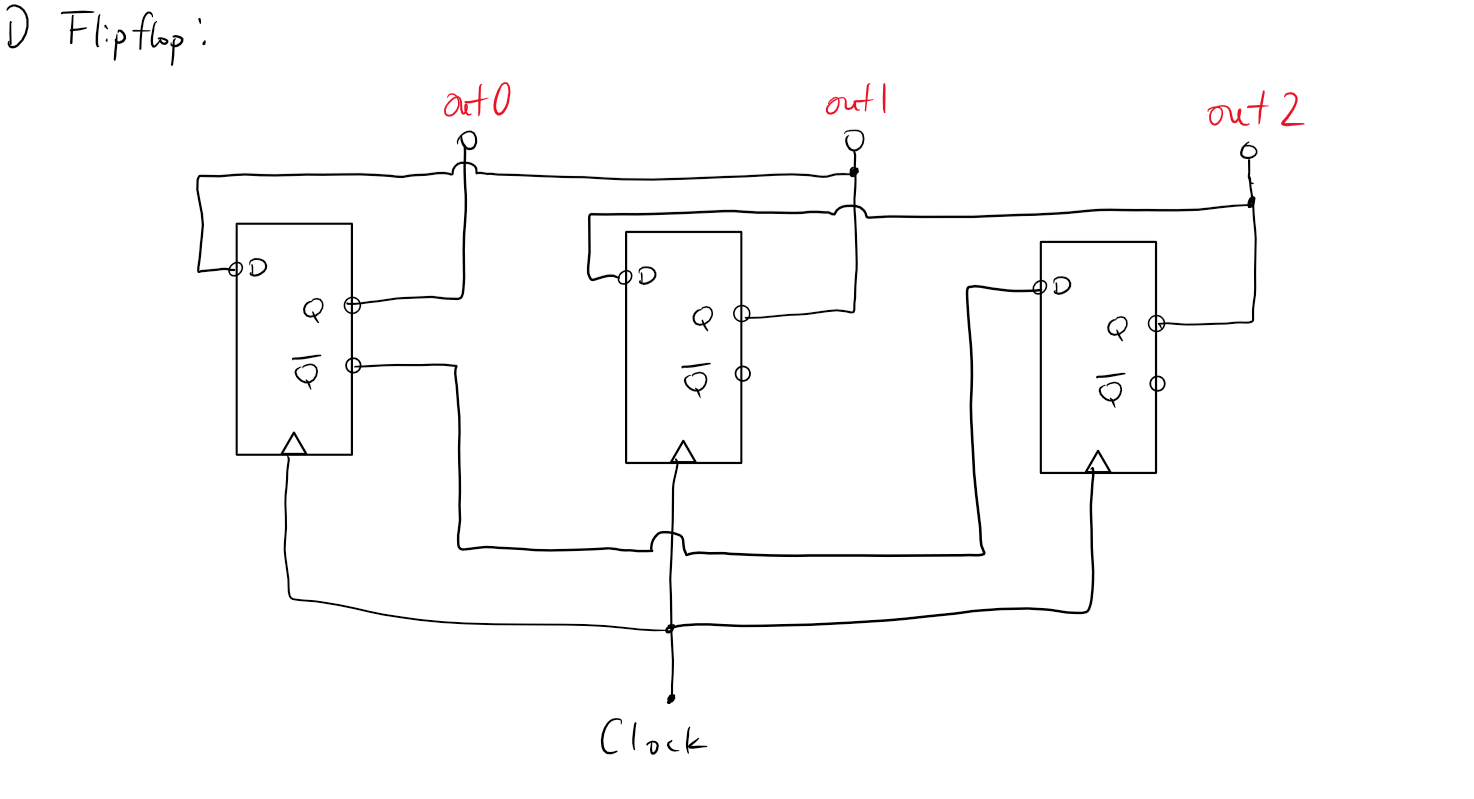 D Flipflop:
out0 out1 out 2
D D D
Q Q Q
Q̅ Q̅ Q̅
Clock